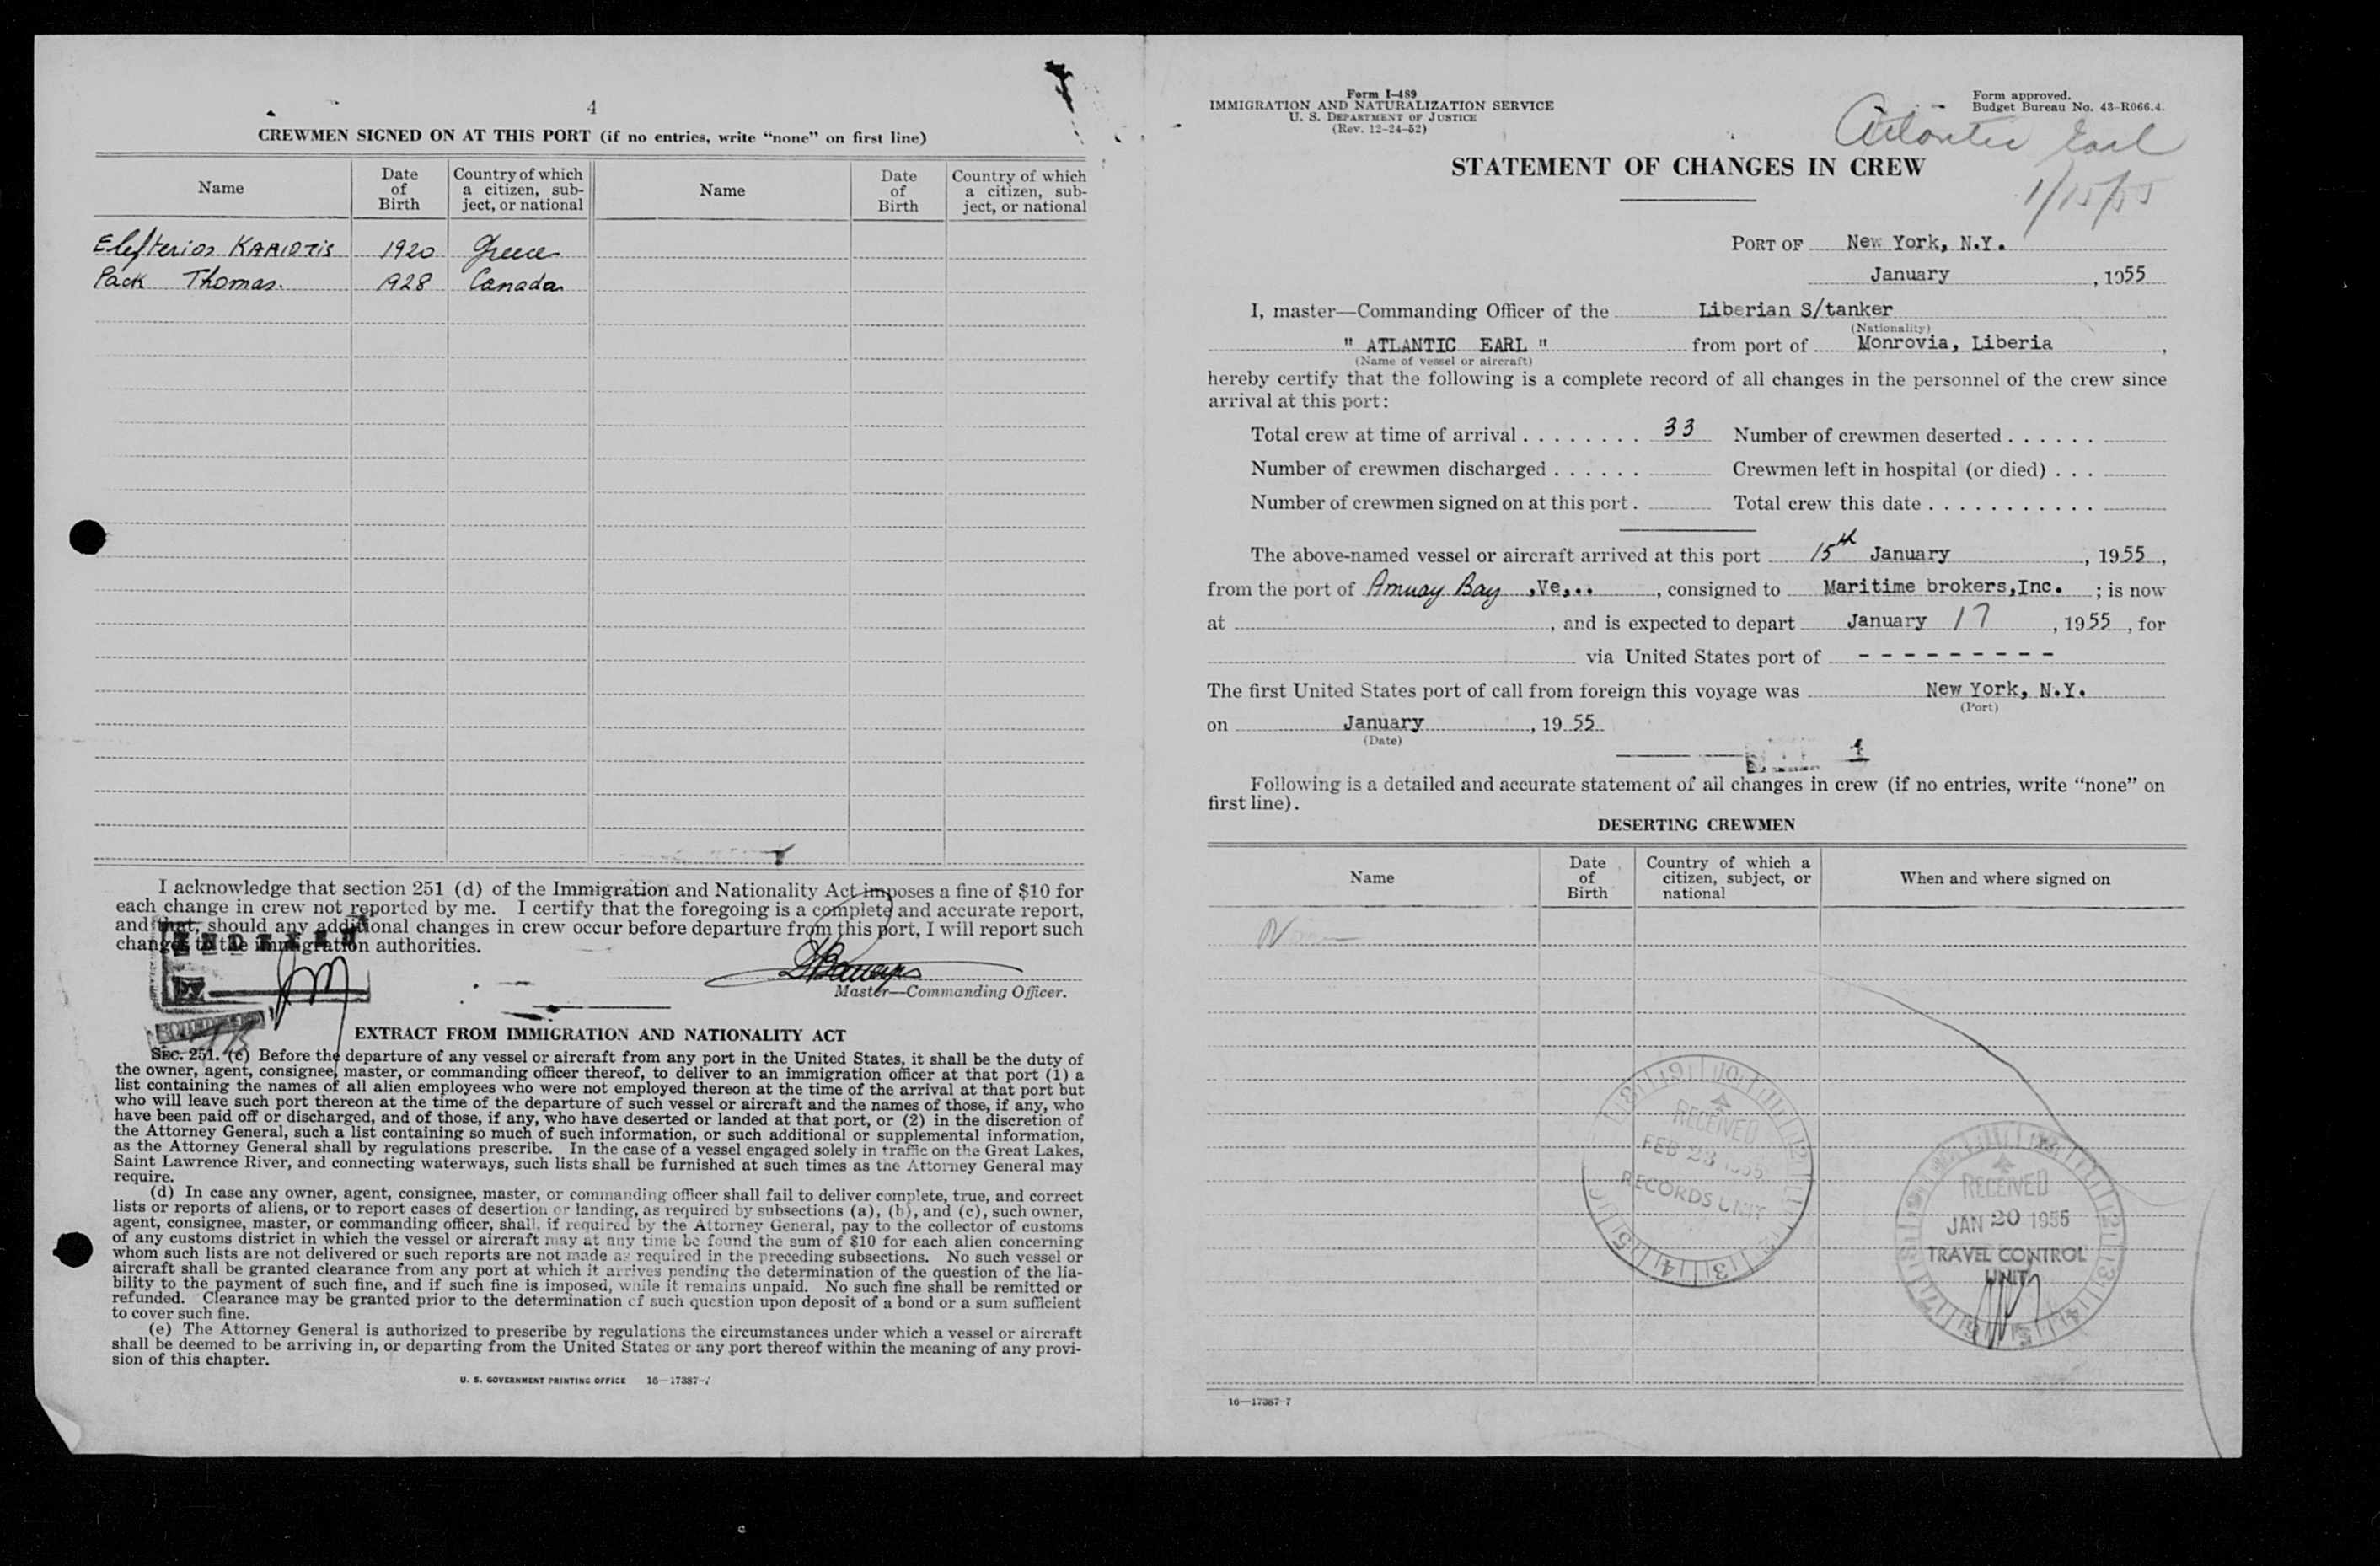 4
CREWMEN SIGNED ON AT THIS PORT (if no entries, write “none” on first line)
Name
Date of Birth
Country of which a citizen, subject, or national
Name
Date of Birth
Country of which a citizen, sub-ject, or national
Elefterios 1920 Greece
Pack Thomas. 1928 Canada
I acknowledge that section 251 (d) of the Immigration and Nationality Act imposes a fine of $10 for
each change in crew not reported by me. I certify that the foregoing is a complete and accurate report,
and that, should any additional changes in crew occur before departure from this port, I will report such
changes to the immigration authorities.
Master—Commanding Officer.
EXTRACT FROM IMMIGRATION AND NATIONALITY ACT
SEC. 251. (c) Before the departure of any vessel or aircraft from any port in the United States, it shall be the duty of
the owner, agent, consignee, master, or commanding officer thereof, to deliver to an immigration officer at that port (1) a
list containing the names of all alien employees who were not employed thereon at the time of the arrival at that port but
who will leave such port thereon at the time of the departure of such vessel or aircraft and the names of those, if any, who
have been paid off or discharged, and of those, if any, who have deserted or landed at that port, or (2) in the discretion of
the Attorney General, such a list containing so much of such information, or such additional or supplemental information,
as the Attorney General shall by regulations prescribe. In the case of a vessel engaged solely in traffic on the Great Lakes,
Saint Lawrence River, and connecting waterways, such lists shall be furnished at such times as the Attorney General may
require.
(d) In case any owner, agent, consignee, master, or commanding officer shall fail to deliver complete, true, and correct
lists or reports of aliens, or to report cases of desertion or landing, as required by subsections (a), (b), and (c), such owner,
agent, consignee, master, or commanding officer, shall, if required by the Attorney General, pay to the collector of customs
of any customs district in which the vessel or aircraft may at any time be found the sum of $10 for each alien concerning
whom such lists are not delivered or such reports are not made as required in the preceding subsections. No such vessel or
aircraft shall be granted clearance from any port at which it arrives pending the determination of the question of the lia-
bility to the payment of such fine, and if such fine is imposed, while it remains unpaid. No such fine shall be remitted or
refunded. Clearance may be granted prior to the determination of such question upon deposit of a bond or a sum sufficient
to cover such fine.
(e) The Attorney General is authorized to prescribe by regulations the circumstances under which a vessel or aircraft
shall be deemed to be arriving in, or departing from the United States or any port thereof within the meaning of any provi-
sion of this chapter.
U. S. GOVERNMENT PRINTING OFFICE 16—17387-7
Form I-489
IMMIGRATION AND NATURALIZATION SERVICE
U. S. DEPARTMENT OF JUSTICE
(Rev. 12-24-52)
Form approved.
Budget Bureau No. 43-R066.4.
Atlantic Earl
1/15/55
STATEMENT OF CHANGES IN CREW
PORT OF New York, N.Y.
January , 1955
I, master—Commanding Officer of the Liberian S/tanker
(Nationality)
" ATLANTIC EARL " from port of Monrovia, Liberia ,
(Name of vessel or aircraft)
hereby certify that the following is a complete record of all changes in the personnel of the crew since
arrival at this port:
Total crew at time of arrival . . . . . . . . 33 Number of crewmen deserted . . . . . .
Number of crewmen discharged . . . . . . Crewmen left in hospital (or died) . . .
Number of crewmen signed on at this port . Total crew this date . . . . . . . . . . .
The above-named vessel or aircraft arrived at this port 15th January , 1955 ,
from the port of Amuay Bay ,Ve,.. , consigned to Maritime brokers,Inc. ; is now
at , and is expected to depart January 17 , 1955 , for
via United States port of - - - - - - - - -
The first United States port of call from foreign this voyage was New York, N.Y.
(Port)
on January , 19 55
(Date)
Following is a detailed and accurate statement of all changes in crew (if no entries, write “none” on
first line).
DESERTING CREWMEN
Name
Date of Birth
Country of which a citizen, subject, or national
When and where signed on
RECEIVED
FEB 23 1955
RECORDS UNIT
RECEIVED
JAN 20 1955
TRAVEL CONTROL
UNIT
16—17387-7